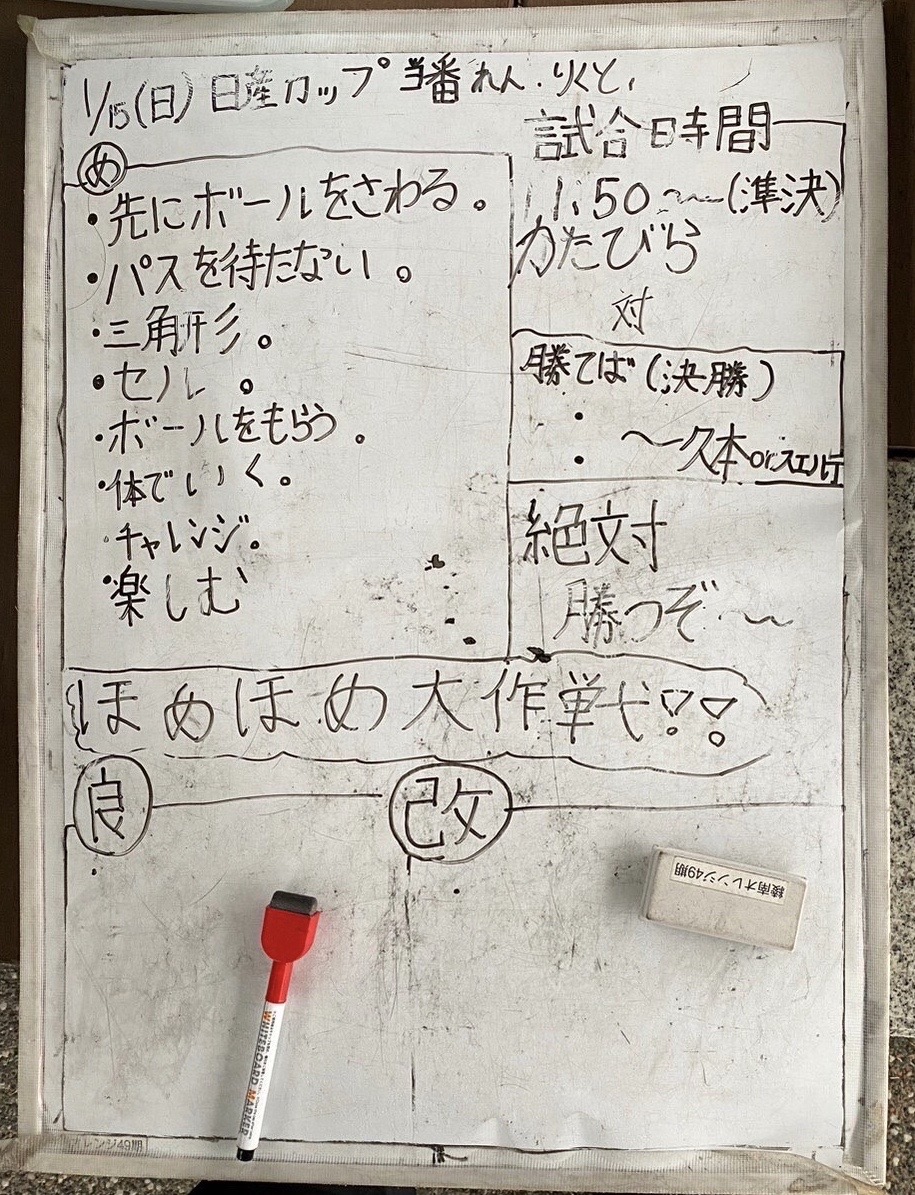 1/15(日) 日産カップ 当番 れん.りくと,
め
・先にボールをさわる。
・パスを待たない。
・三角形。
・セル 。
・ボールをもらう。
・体でいく。
・チャレンジ。
・楽しむ
試合時間
11:50~~(準決)
かたびら
対
勝てば(決勝)
・
・ 〜久本orスエルテ
絶対
勝つぞ~~
ほめほめ大作戦!!
良
・
改
・
綾南オレンジ49期
WHITEBOARD MARKER
オレンジ49期